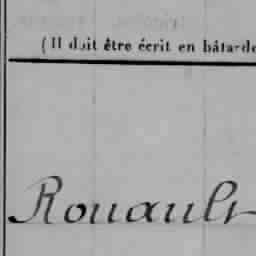 (Il doit être écrit en bâtarde
Rouault